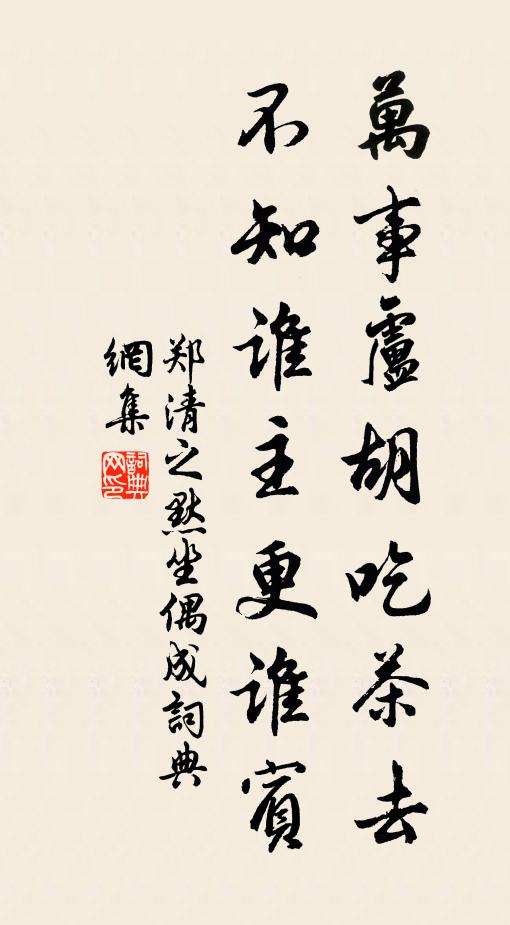 萬事盧胡吃茶去
不知誰主更誰賓
郑清之黙坐偶成詞典
網集
詞典網印